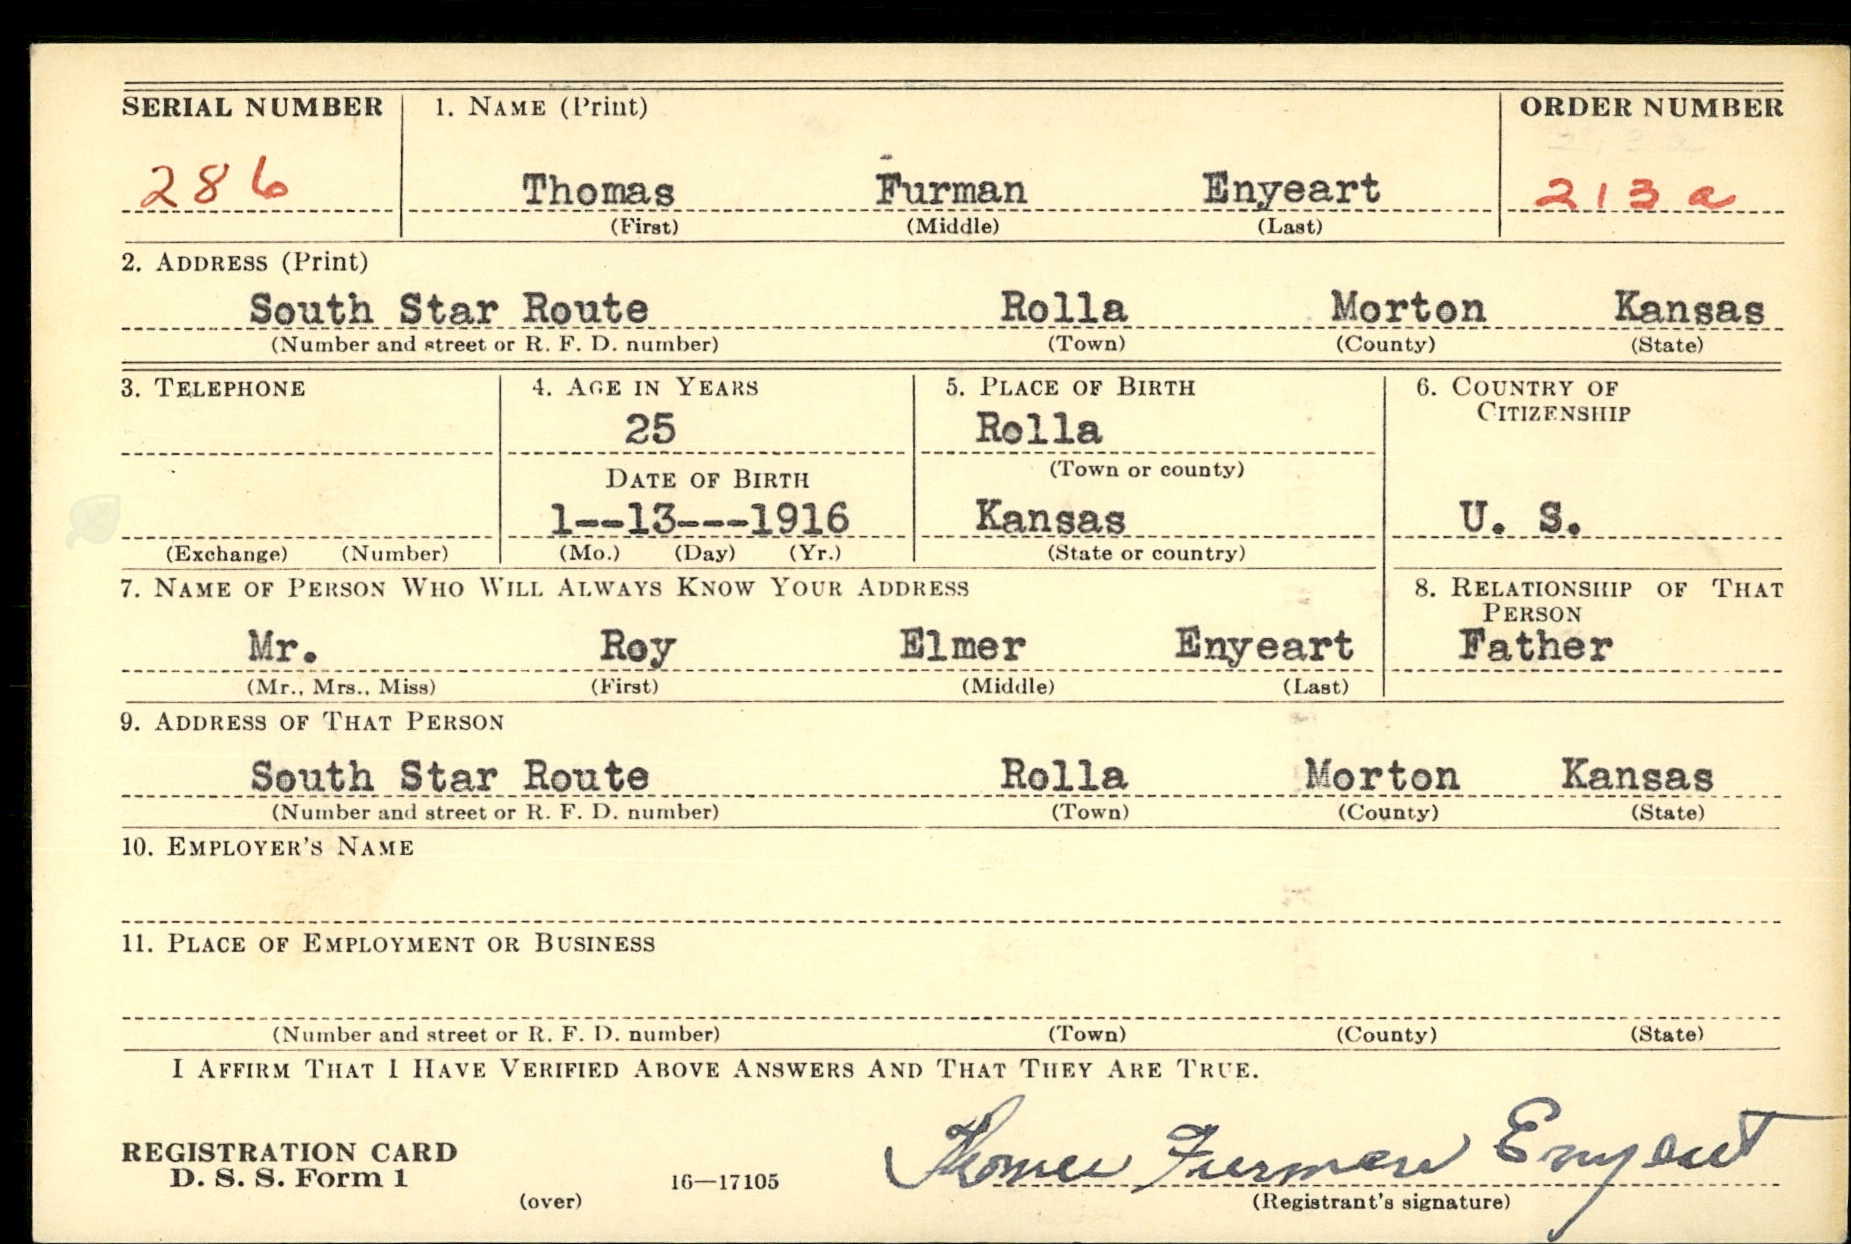 SERIAL NUMBER 1. NAME (Print) ORDER NUMBER
286 Thomas Furman Enyeart 213 a
(First) (Middle) (Last)
2. ADDRESS (Print)
South Star Route Rolla Morton Kansas
(Number and street or R. F. D. number) (Town) (County) (State)
3. TELEPHONE 4. AGE IN YEARS 5. PLACE OF BIRTH 6. COUNTRY OF
CITIZENSHIP
25 Rolla
(Town or county)
DATE OF BIRTH
1--13---1916 Kansas U. S.
(Exchange) (Number) (Mo.) (Day) (Yr.) (State or country)
7. NAME OF PERSON WHO WILL ALWAYS KNOW YOUR ADDRESS 8. RELATIONSHIP OF THAT
PERSON
Mr. Roy Elmer Enyeart Father
(Mr., Mrs., Miss) (First) (Middle) (Last)
9. ADDRESS OF THAT PERSON
South Star Route Rolla Morton Kansas
(Number and street or R. F. D. number) (Town) (County) (State)
10. EMPLOYER'S NAME
11. PLACE OF EMPLOYMENT OR BUSINESS
(Number and street or R. F. D. number) (Town) (County) (State)
I AFFIRM THAT I HAVE VERIFIED ABOVE ANSWERS AND THAT THEY ARE TRUE.
REGISTRATION CARD
D. S. S. Form 1 16—17105 Thomas Furman Enyeart
(over) (Registrant's signature)